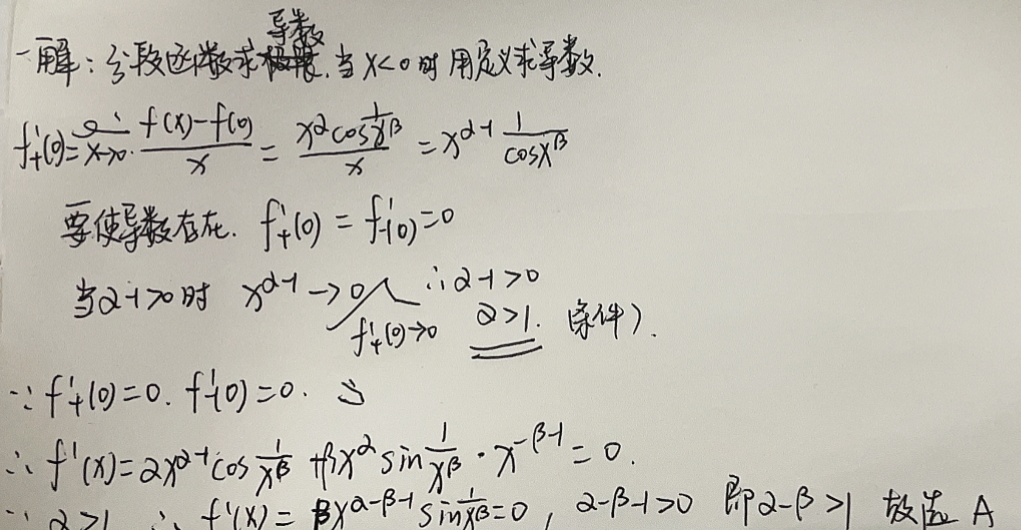 一解：分段函数求导数.当x<0时用定义求导数.
f'₊(0)= x→0 (f(x)-f(0))/x = (x^α cos 1/x^β)/x = x^(α-1) 1/cosx^β
要使导数存在. f'₊(0) = f'₋(0) = 0
当α-1>0时 x^(α-1) → 0 ∴α-1>0
f'₊(0)→0 α>1. 条件).
∵ f'₊(0)=0. f'₋(0)=0.
∴ f'(x)=αx^(α-1) cos 1/x^β +βx^α sin 1/x^β · x^(-β-1) = 0.
∵ α>1 ∴ f'(x) = βx^(α-β-1) sin 1/x^β = 0 , α-β-1>0 即α-β>1 故选 A